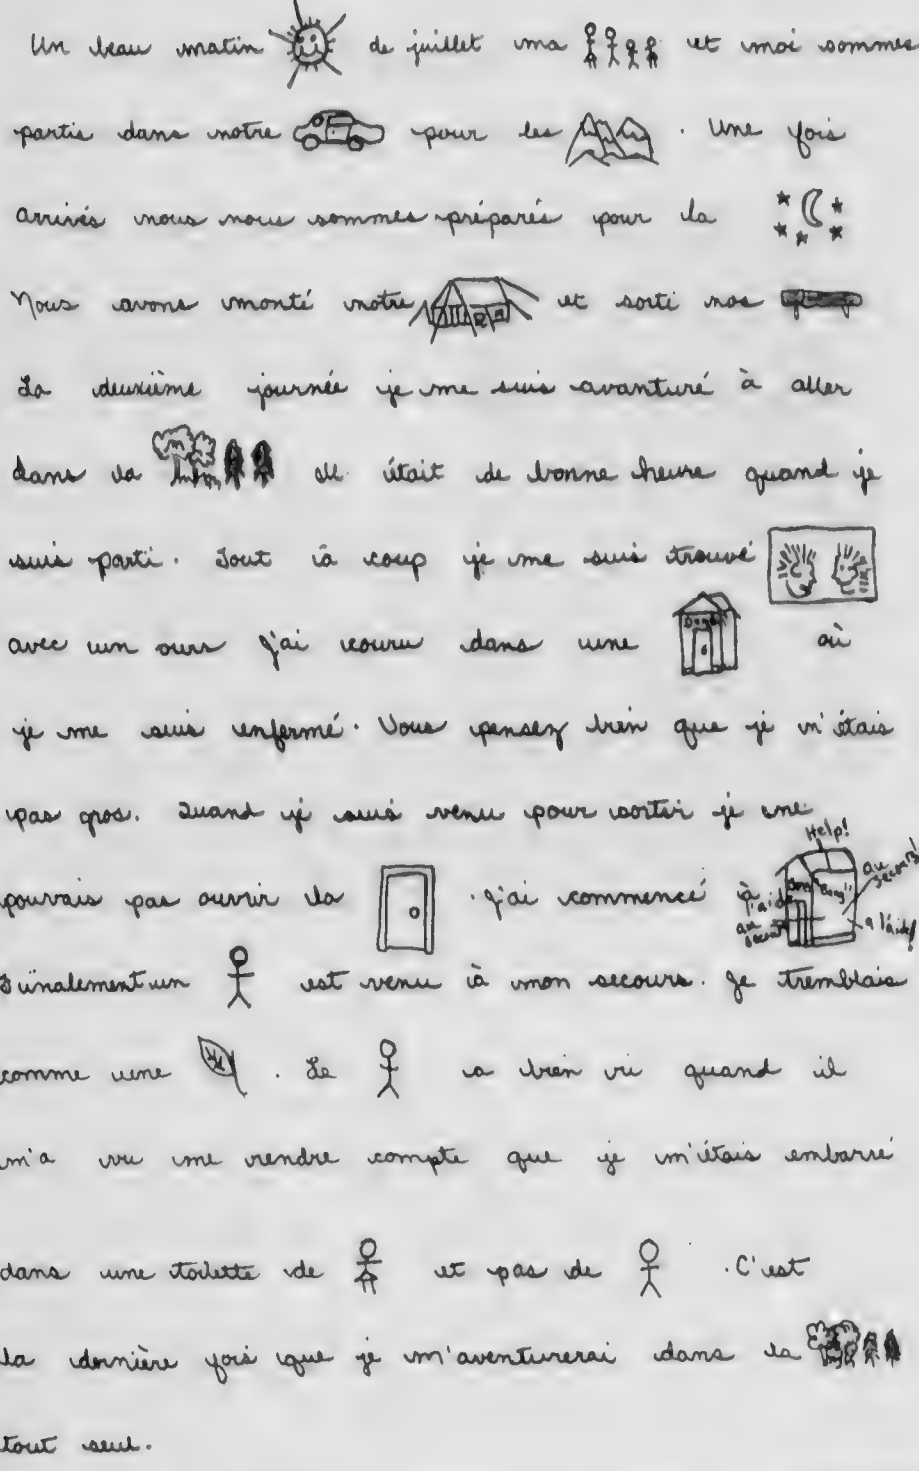 Un beau matin de juillet ma et moi sommes
partis dans notre pour les . Une fois
arrivés nous nous sommes préparés pour la
Nous avons monté notre et sorti nos
La deuxième journée je me suis avanturé à aller
dans la Il était de bonne heure quand je
suis parti. Tout à coup je me suis trouvé
avec un ours j'ai couru dans une où
je me suis enfermé. Vous pensez bien que je n'étais
pas gros. Quand je suis venu pour sortir je ne
Help!
pouvais pas ouvrir la . j'ai commencé à
au secours!
à l'aide
au secours
à l'aide!
Fiinalement un est venu à mon secours. Je tremblais
comme une . Le a bien ri quand il
m'a vu me rendre compte que je m'étais embarré
dans une toilette de et pas de . C'est
la dernière fois que je m'aventurerai dans la
tout seul.